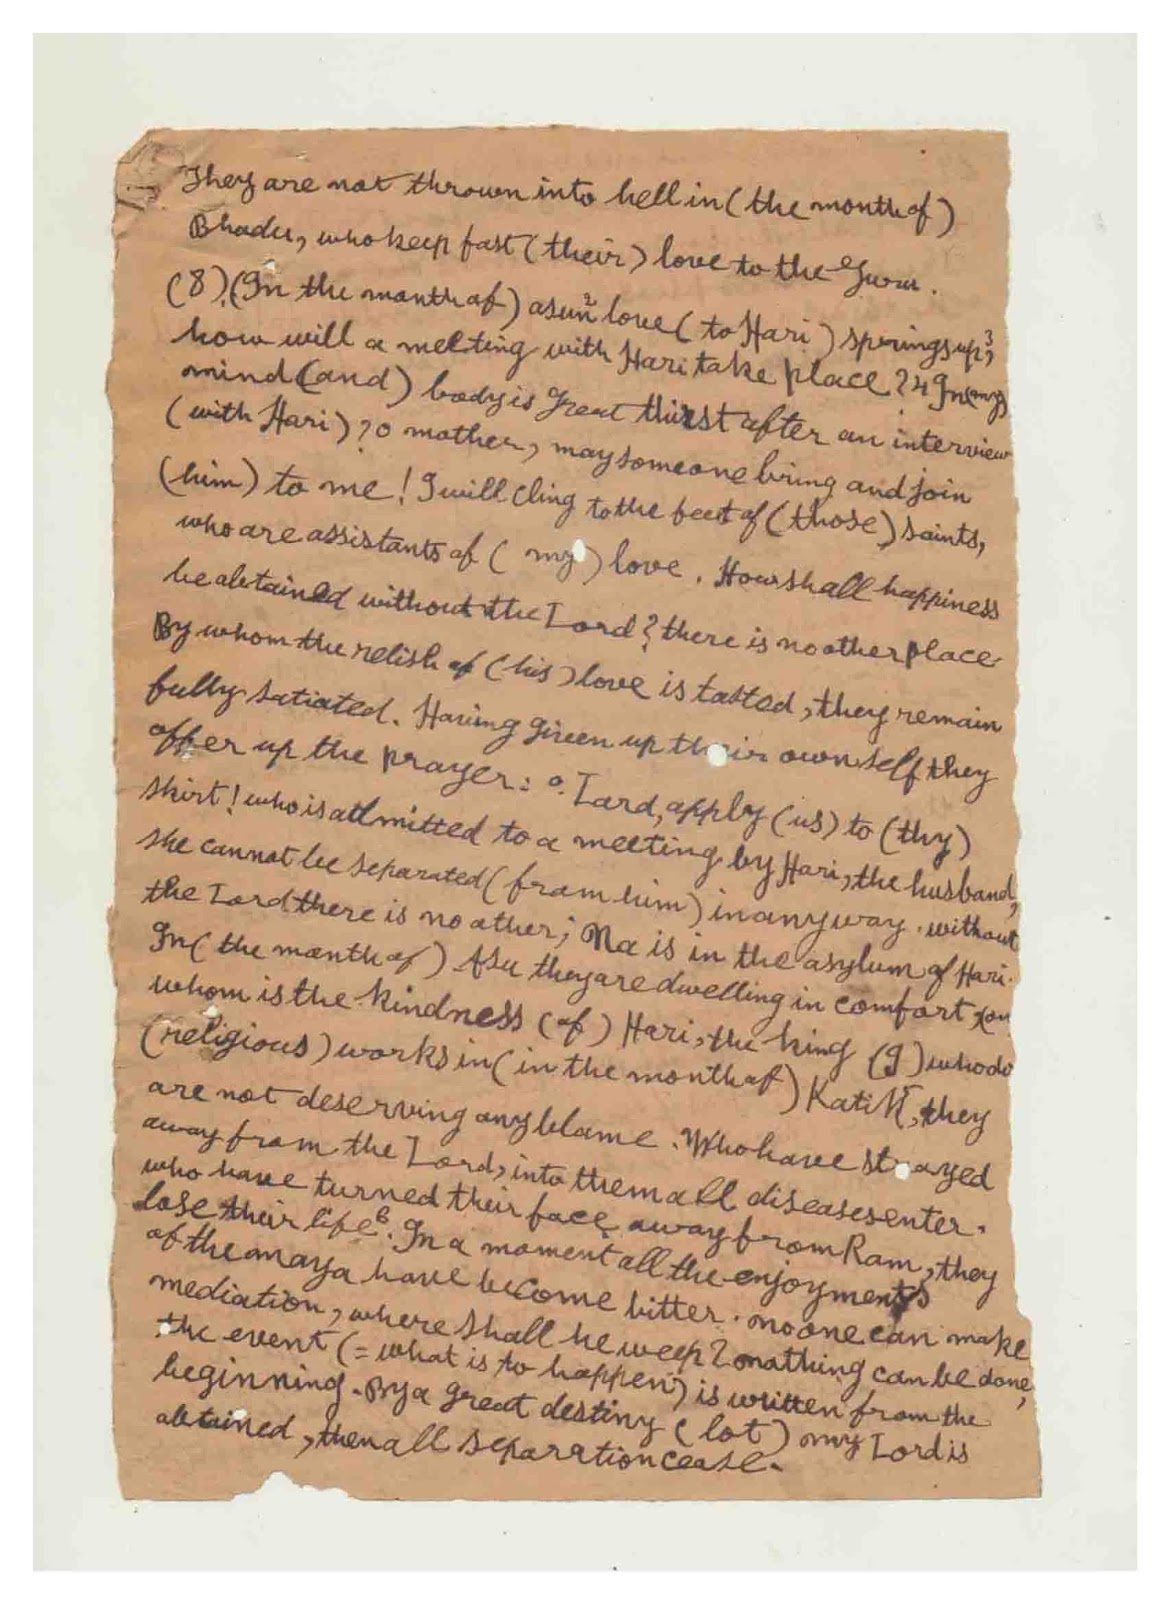 They are not thrown into hell in (the month of)
Bhadu, who keep fast (their) love to the Guru.
(8) (In the month of) asun² love (to Hari) springs up³,
how will a meeting with Hari take place? 4 In (my)
mind (and) body is great thirst after an interview
(with Hari)? o mother, may someone bring and join
(him) to me! I will cling to the feet of (those) saints,
who are assistants of (my) love. How shall happiness
be obtained without the Lord? there is no other place
By whom the relish of (his) love is tasted, they remain
fully satiated. Having given up their own self they
offer up the prayer: o. Lord, apply (us) to (thy)
skirt! who is admitted to a meeting by Hari, the husband,
she cannot be separated (from him) in any way. without
the Lord there is no other; Na is in the asylum of Hari.
In (the month of) Asu they are dwelling in comfort, on
whom is the kindness (of) Hari, the king (9) who do
(religious) works in (in the month of) Katik⁵, they
are not deserving any blame. Who have strayed
away from the Lord, into them all diseases enter.
who have turned their face away from Ram, they
lose their life⁶. In a moment all the enjoyments
of the maya have become bitter. no one can make
mediation, where shall he weep? nothing can be done,
the event (= what is to happen) is written from the
beginning. By a great destiny (lot) my Lord is
obtained, then all separation cease.